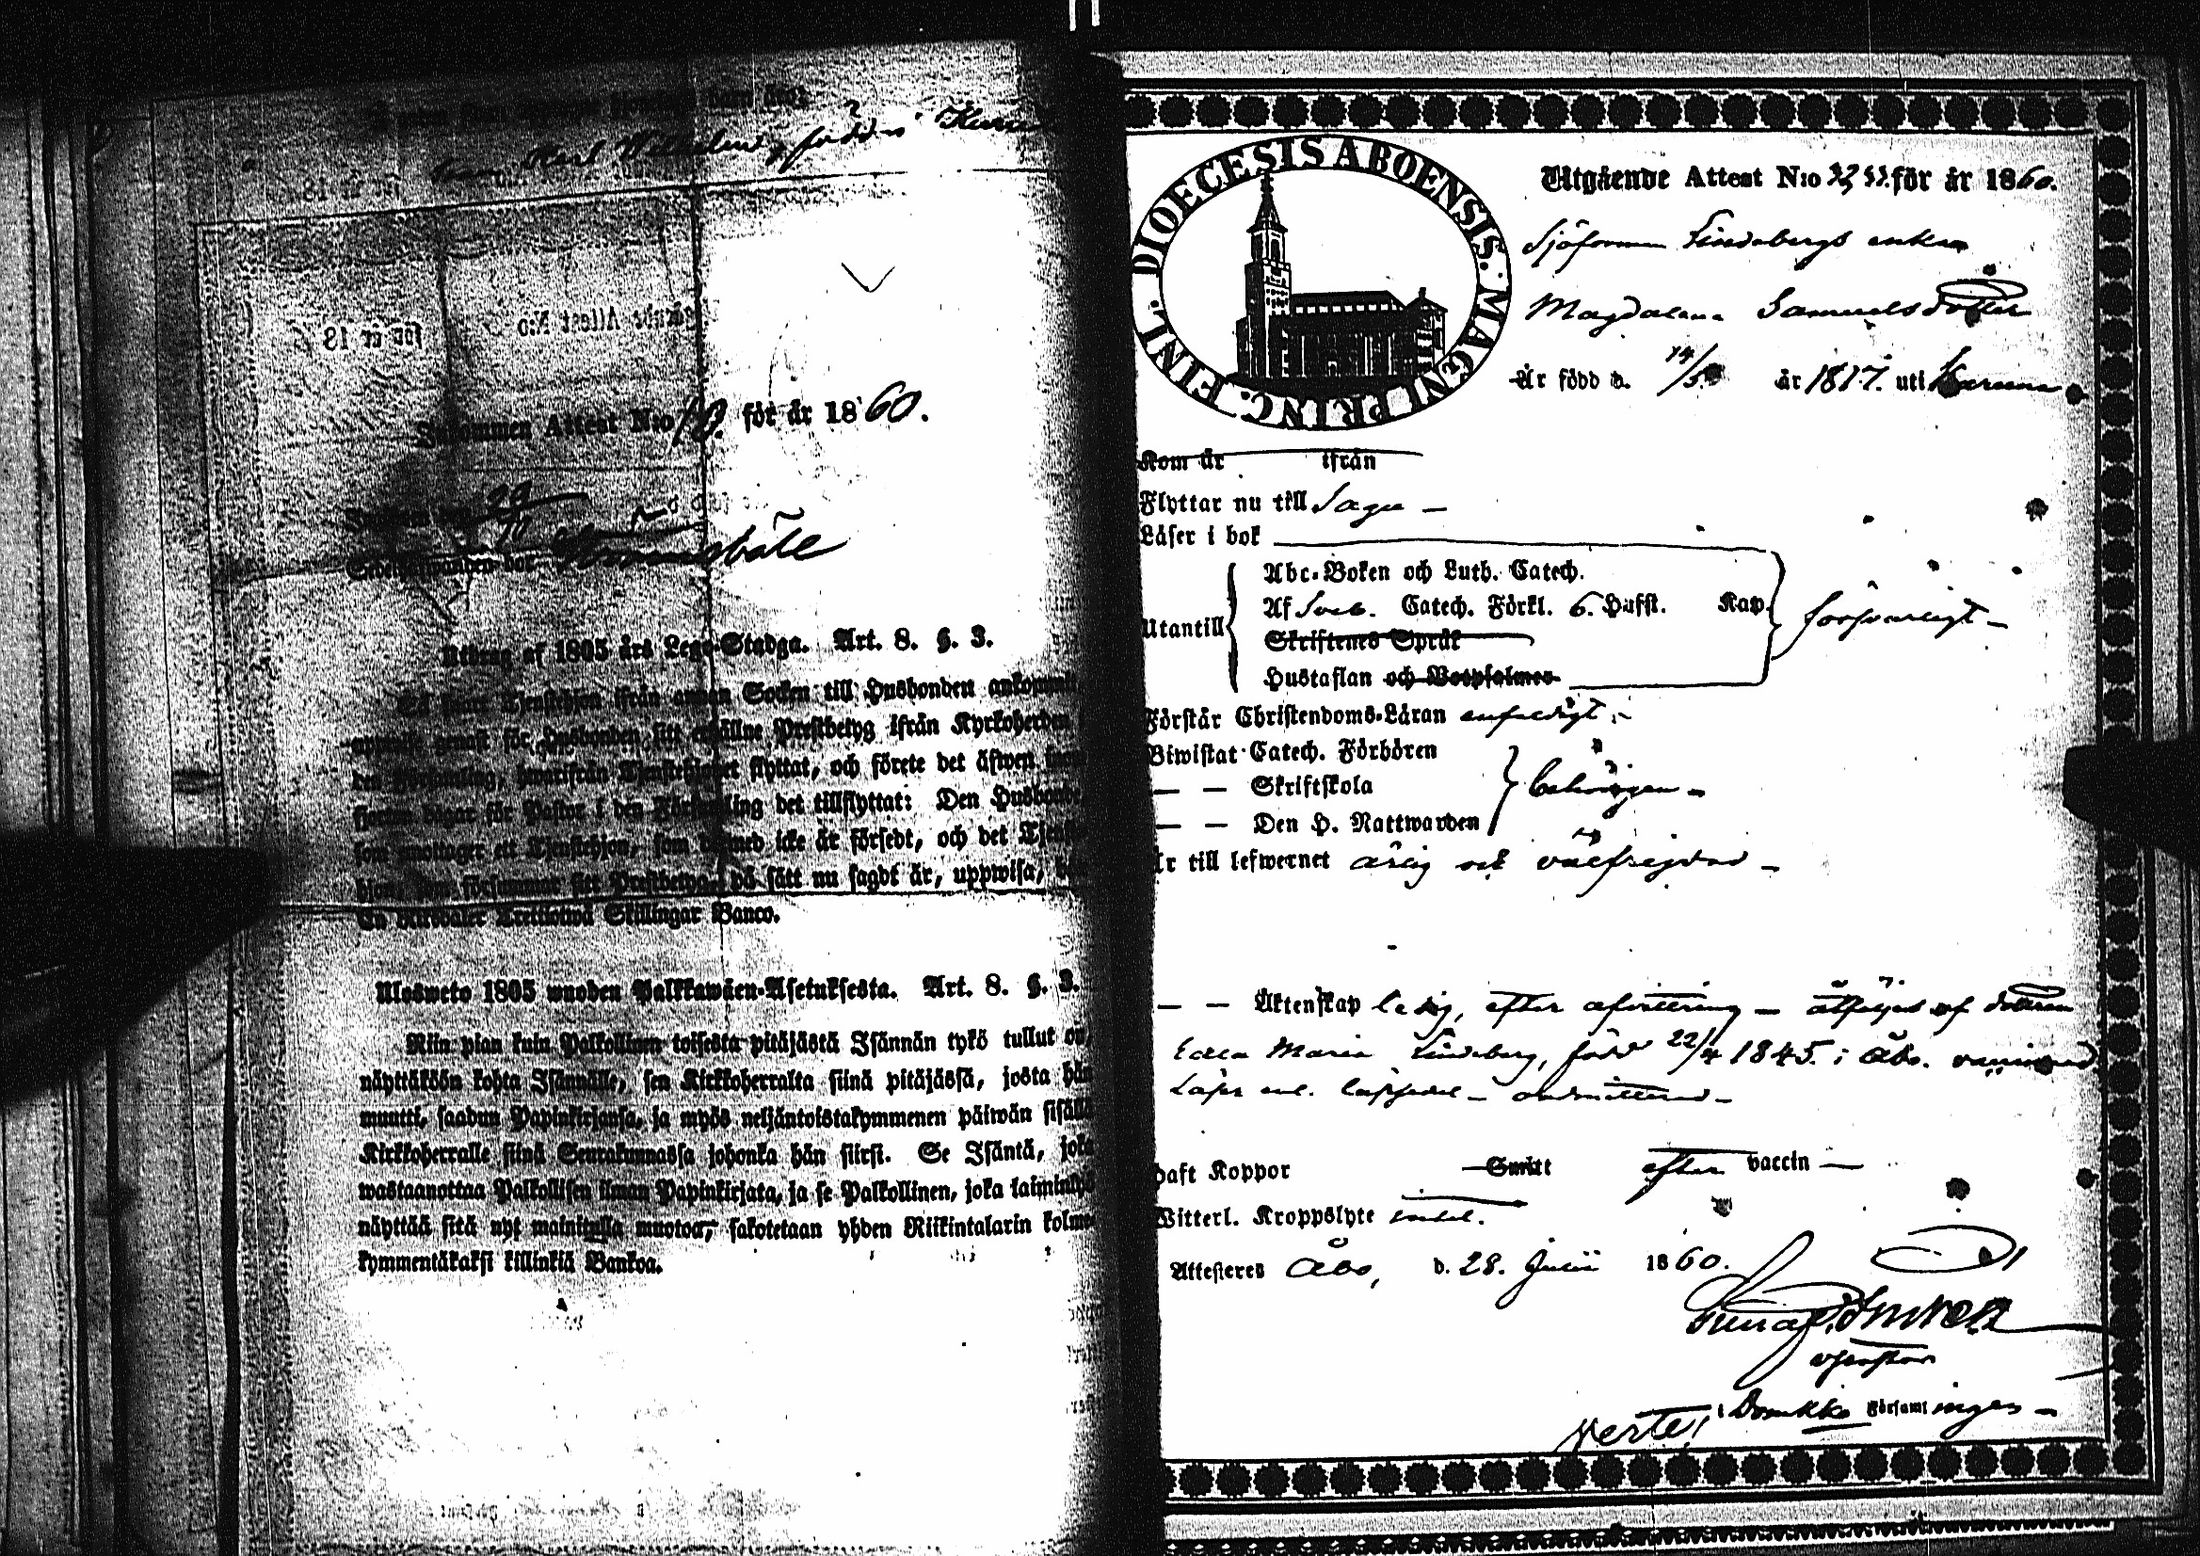 Karl Wilhelm, född i
Inkommen Attest N:o 18. för år 1860.
29
Utdrag af 1805 års Lego-Stadga. Art. 8. §. 3.
Så snart Tjenstehjon ifrån annan Socken till Husbonden ankommit,
uppwise genast för Husbonden sitt erhållne Prestbetyg ifrån Kyrkoherden i
den Församling, hwarifrån Tjenstehjonet flyttat, och förete det äfwen inom
fjorton dagar för Pastor i den Församling det tillflyttat: Den Husbonde,
som emottager ett Tjenstehjon, som dermed icke är försedt, och det Tjenste-
hjon, som försummar sitt Prestbetyg, på sätt nu sagdt är, uppwisa,
En Riksdaler Trettiotwå Skillingar Banco.
Ulosweto 1805 wuoden Palkkawäen-Asetuksesta. Art. 8. §. 3.
Niin pian kuin Palkollinen toisesta pitäjästä Isännän tykö tullut on,
näyttäköön kohta Isännälle, sen Kirkkoherralta siinä pitäjässä, josta hän
muutti, saadun Papinkirjansa, ja myös neljäntoistakymmenen päiwän sisällä
Kirkkoherralle siinä Seurakunnassa johonka hän siirsi. Se Isäntä, joka
wastaanottaa Palkollisen ilman Papinkirjata, ja se Palkollinen, joka laiminlyö
näyttää sitä nyt mainitulla muotoa, sakotetaan yhden Riikintalarin kolme-
kymmentäkaksi killinkiä Bankoa.
DIOECESIS ABOENSIS. MAGNI PRINC. FINL.
Utgående Attest N:o för år 1860.
Sjöforman Lindebergs enka
Magdalena Samuelsdotter
Är född d. 14/5 år 1817. uti Karuna
Kom år ifrån
Flyttar nu till Sagu –
Läser i bok
Abc-Boken och Luth. Catech.
Utantill Af Sveb. Catech. Förkl. 6. Hufst. Kap. försvarligt –
Skriftenes Språk
Hustaflan och Botpsalmer
Förstår Christendoms-Läran enfaldigt –
Biwistat Catech. Förhören
— — Skriftskola behörigen –
— — Den H. Nattwarden
Är till lefwernet ärlig och välfrejdad –
— — Äktenskap ledig, efter afvittring – åtföljes af dottren
Edla Maria Lindeberg, född 22/4 1845. i Åbo. vaccinerad
Läser enl. läsesedel – oadmitterad –
Haft Koppor Smitt efter vaccin —
Witterl. Kroppslyte intet.
Attesteras Åbo, d. 28. Julii 1860.
v Pastor
Verte! i Domkko Församlingen –